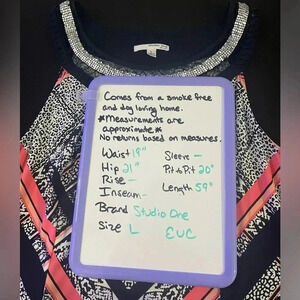 Comes from a smoke free
and dog loving home.
*Measurements are
approximate*
No returns based on measures.
Waist 19" Sleeve —
Hip 21" Pit to Pit 20"
Rise — Length 59"
Inseam —
Brand Studio One
Size L EUC